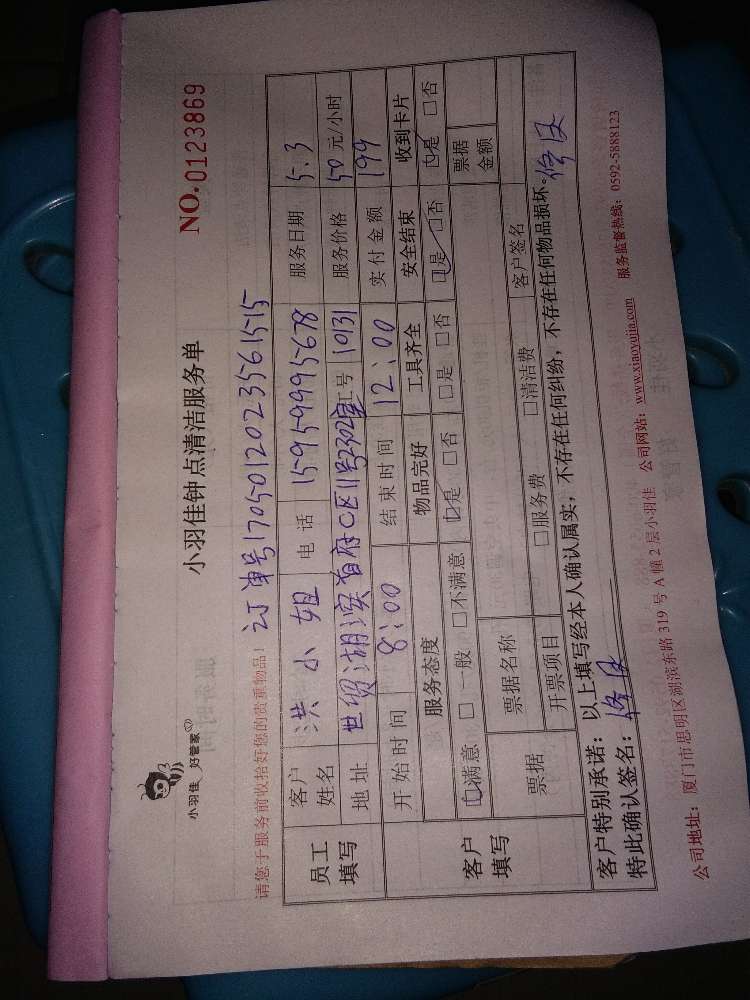 小羽佳 好管家
小羽佳钟点清洁服务单
NO.0123869
请您于服务前收拾好您的贵重物品!
订单号170501202356 1515
员工填写
客户姓名 洪小姐 电话 15959995678 服务日期 5.3
地址 世贸湖滨首府C区11号2302室 工号 10131 服务价格 50元/小时
开始时间 8:00 结束时间 12:00 实付金额 199
客户填写
服务态度 物品完好 工具齐全 安全结束 收到卡片
□满意 □一般 □不满意 □是 □否 □是 □否 □是 □否 □是 □否
票据 票据名称 票据金额
开票项目 □服务费 □清洁费 客户签名
客户特别承诺: 以上填写经本人确认属实,不存在任何纠纷,不存在任何物品损坏。
特此确认签名:
公司地址: 厦门市思明区湖滨东路319号A幢2层小羽佳 公司网站: www.xiaoyujia.com 服务监督热线: 0592-5888123